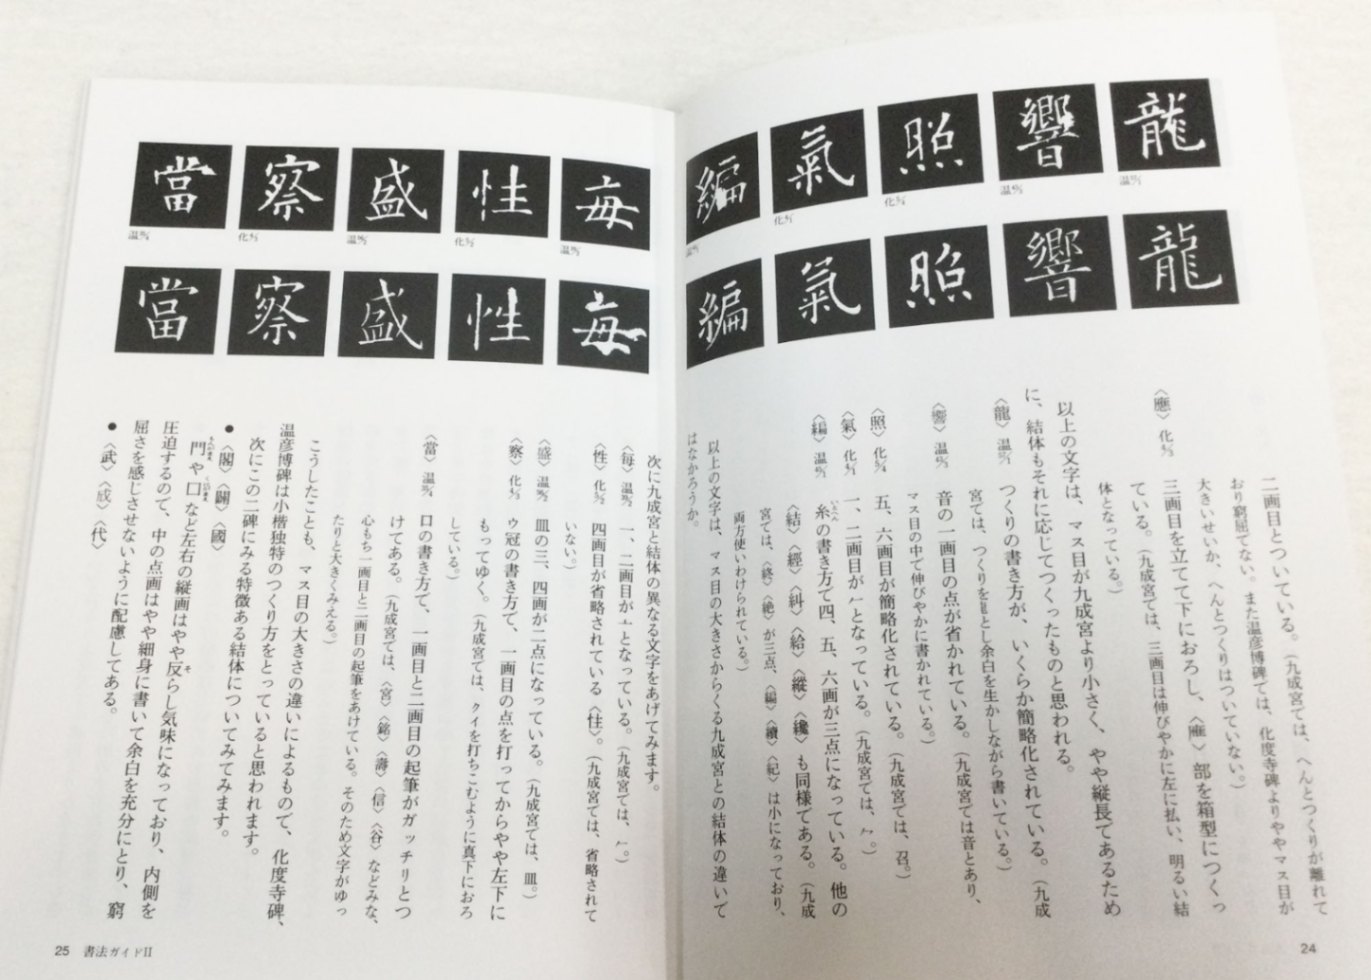 龍
響
照
氣
編
龍
響
照
氣
編
二画目とついている。（九成宮では、へんとつくりが離れて
おり窮屈でない。また温彦博碑では、化度寺碑よりややマス目が
大きいせいか、へんとつくりはついていない。）
〈應〉 化 三画目を立てて下におろし、〈䧹〉部を箱型につくっ
ている。（九成宮では、三画目は伸びやかに左に払い、明るい結
体となっている。）
以上の文字は、マス目が九成宮より小さく、やや縦長であるため
に、結体もそれに応じてつくったものと思われる。
〈龍〉 温 つくりの書き方が、いくらか簡略化されている。（九成
宮では、つくりを とし余白を生かしながら書いている。）
〈響〉 温 音の一画目の点が省かれている。（九成宮では音とあり、
マス目の中で伸びやかに書かれている。）
〈照〉 化 五、六画目が簡略化されている。（九成宮では、召。）
〈氣〉 化 一、二画目が となっている。（九成宮では、𠂉。）
〈編〉 温 糸の書き方で四、五、六画が三点になっている。他の
〈結〉〈經〉〈糾〉〈給〉〈縱〉〈纔〉も同様である。（九成
宮では、〈終〉〈絶〉が三点、〈編〉〈續〉〈紀〉は小になっており、
両方使いわけられている。）
以上の文字は、マス目の大きさからくる九成宮との結体の違いで
はなかろうか。
24
毎
性
盛
察
當
毎
性
盛
察
當
次に九成宮と結体の異なる文字をあげてみます。
〈毎〉 温 一、二画目が亠となっている。（九成宮では、𠂉。）
〈性〉 化 四画目が省略されている〈住〉。（九成宮では、省略されて
いない。）
〈盛〉 温 皿の三、四画が二点になっている。（九成宮では、皿。）
〈察〉 化 ウ冠の書き方で、一画目の点を打ってからやや左下に
もってゆく。（九成宮では、クイを打ちこむように真下におろ
している。）
〈當〉 温 口の書き方で、一画目と二画目の起筆がガッチリとつ
けてある。（九成宮では、〈宮〉〈銘〉〈濤〉〈信〉〈谷〉などみな、
心もち一画目と二画目の起筆をあけている。そのため文字がゆっ
たりと大きくみえる。）
こうしたことも、マス目の大きさの違いによるもので、化度寺碑、
温彦博碑は小楷独特のつくり方をとっていると思われます。
次にこの二碑にみる特徴ある結体についてみてみます。
● 〈閣〉〈闢〉〈國〉
門や囗など左右の縦画はやや反らし気味になっており、内側を
圧迫するので、中の点画はやや細身に書いて余白を充分にとり、窮
屈さを感じさせないように配慮してある。
● 〈武〉〈成〉〈代〉
25 書法ガイドII